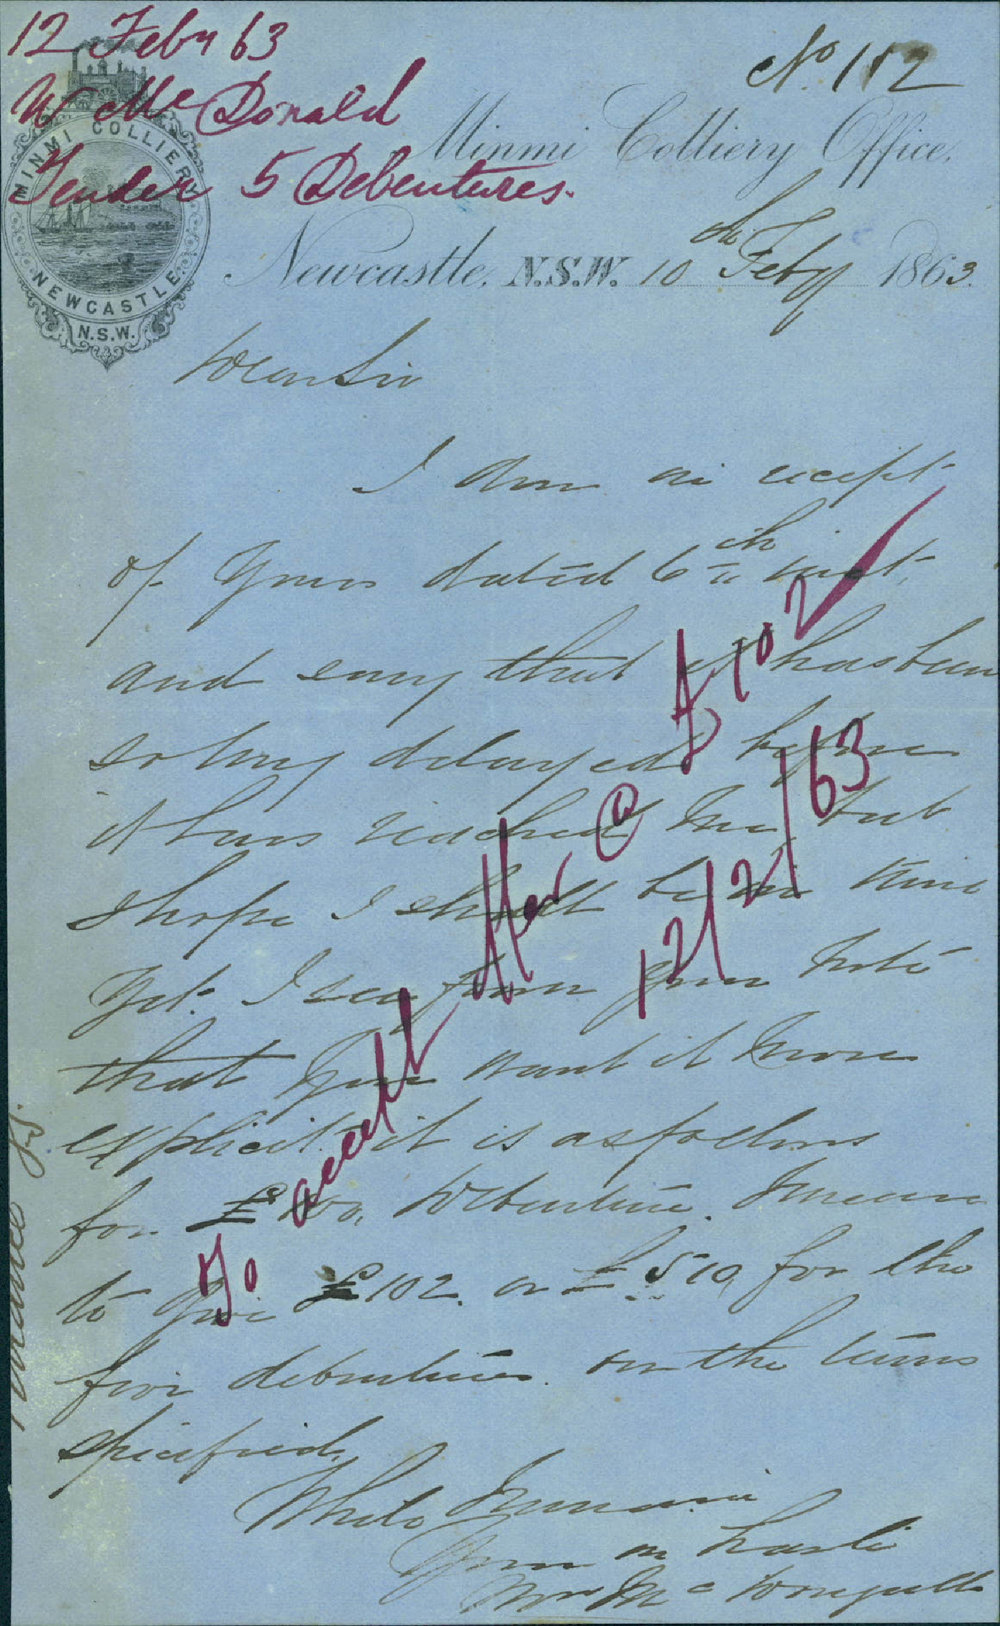 12 Feby 63
W McDonald
Tender 5 Debentures.
No 112
MINMI COLLIERY
NEWCASTLE
N.S.W.
Minmi Colliery Office.
Newcastle, N.S.W. 10th Feby 1863.
Dear Sir
I am in receipt
of yours dated 6th inst,
and sorry that it has been
so long delayed before
it has reached me, but
I hope I shall be in time
yet. I see from your note
that you want it more
explicit. it is as follows
for £100, Debenture. I mean
to give £102. or £510 for the
five debentures. on the terms
specified.
Yours in haste
Wm Mc
To accept offer @ £102
12/2/63